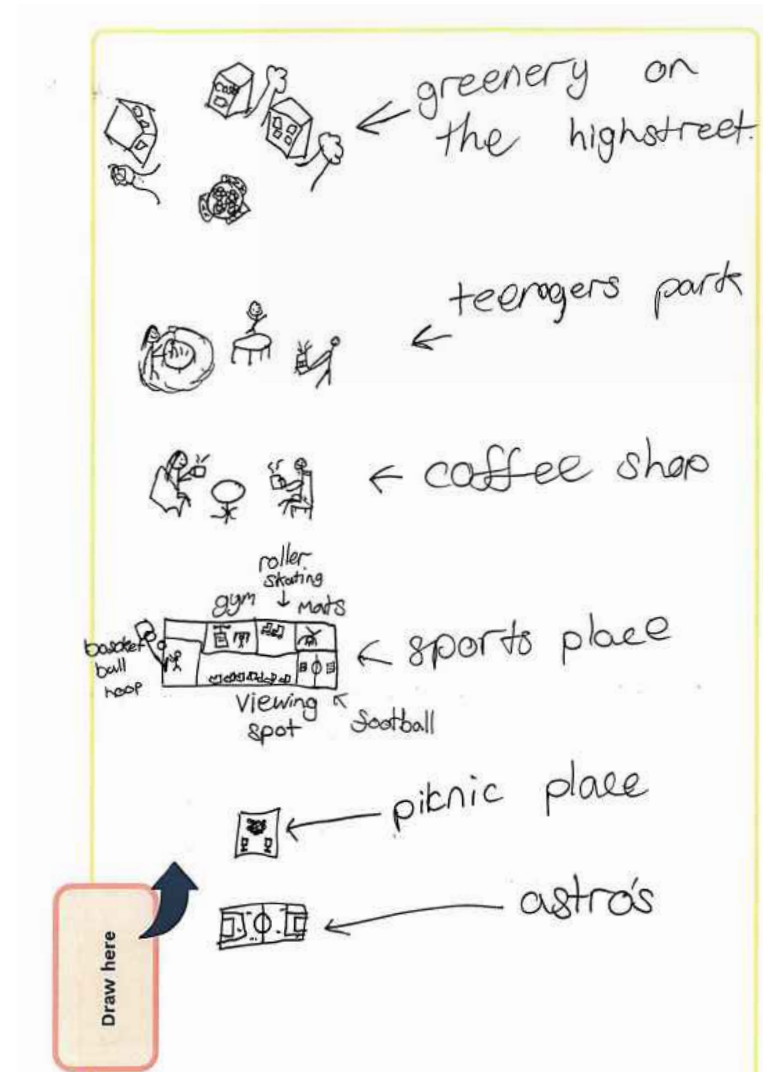 greenery on
the highstreet.
teenagers park
coffee shop
roller
skating
gym
mats
basket
ball
hoop
sports place
viewing
spot
football
piknic place
astro's
Draw here